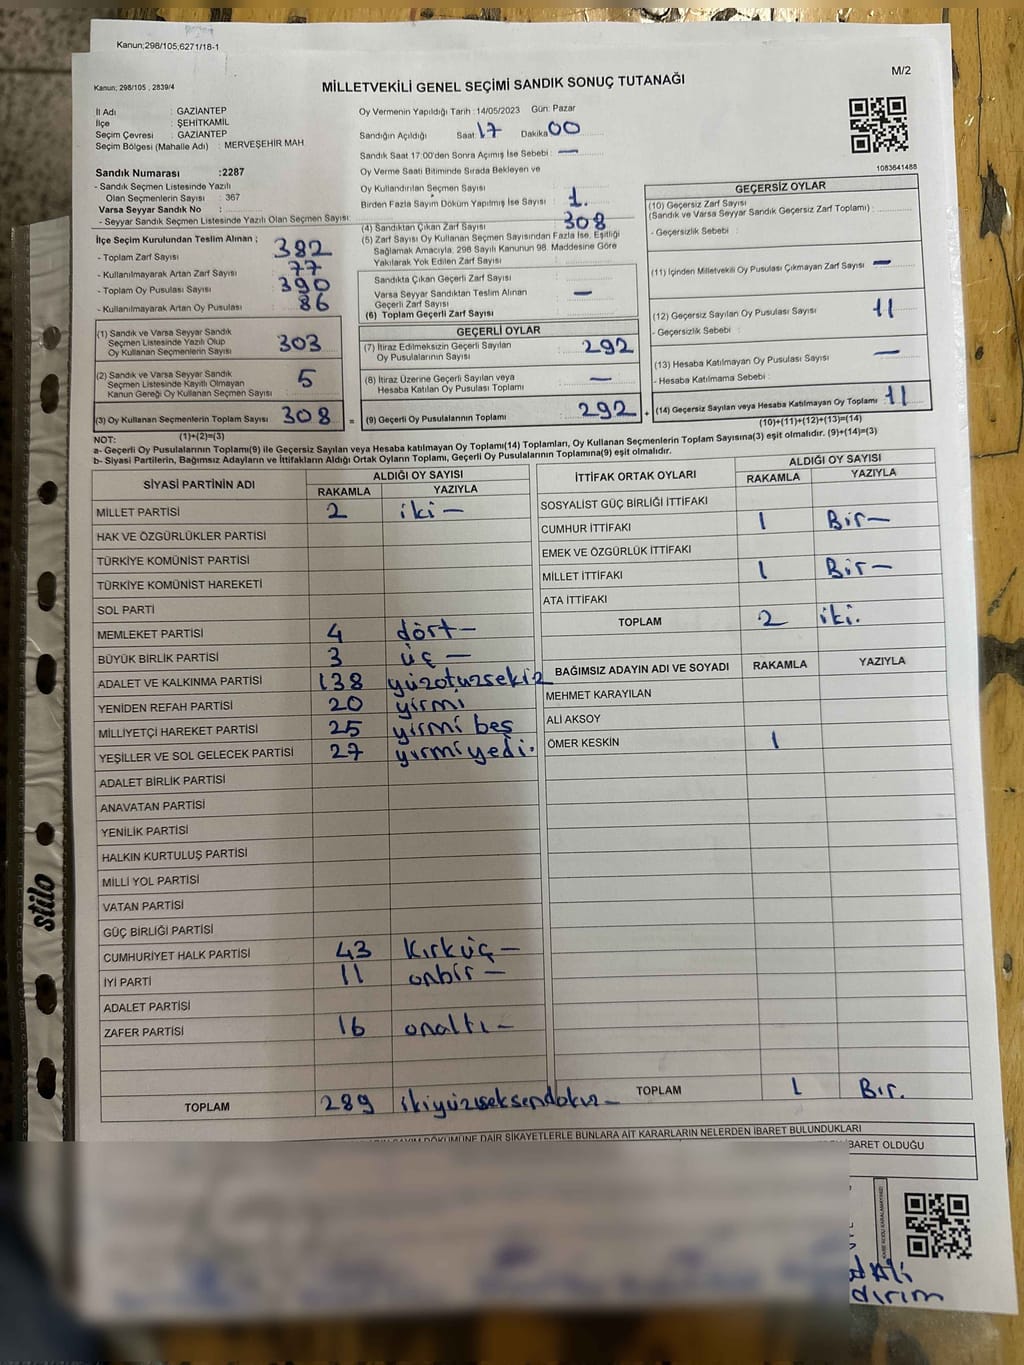 Kanun;298/105;6271/18-1
Kanun; 298/105 , 2839/4
MİLLETVEKİLİ GENEL SEÇİMİ SANDIK SONUÇ TUTANAĞI
M/2
İl Adı : GAZİANTEP
İlçe : ŞEHİTKAMİL
Seçim Çevresi : GAZİANTEP
Seçim Bölgesi (Mahalle Adı) : MERVEŞEHİR MAH
Sandık Numarası :2287
- Sandık Seçmen Listesinde Yazılı
Olan Seçmenlerin Sayısı : 367
Varsa Seyyar Sandık No :
- Seyyar Sandık Seçmen Listesinde Yazılı Olan Seçmen Sayısı:
İlçe Seçim Kurulundan Teslim Alınan ;
- Toplam Zarf Sayısı 382
- Kullanılmayarak Artan Zarf Sayısı 77
- Toplam Oy Pusulası Sayısı 390
- Kullanılmayarak Artan Oy Pusulası 86
(1) Sandık ve Varsa Seyyar Sandık
Seçmen Listesinde Yazılı Olup
Oy Kullanan Seçmenlerin Sayısı 303
(2) Sandık ve Varsa Seyyar Sandık
Seçmen Listesinde Kayıtlı Olmayan
Kanun Gereği Oy Kullanan Seçmen Sayısı 5
(3) Oy Kullanan Seçmenlerin Toplam Sayısı 308 =
(1)+(2)=(3)
Oy Vermenin Yapıldığı Tarih : 14/05/2023 Gün: Pazar
Sandığın Açıldığı Saat 17 Dakika 00
Sandık Saat 17:00'den Sonra Açımış İse Sebebi : —
Oy Verme Saati Bitiminde Sırada Bekleyen ve
Oy Kullandırılan Seçmen Sayısı
Birden Fazla Sayım Döküm Yapılmış İse Sayısı : 1.
(4) Sandıktan Çıkan Zarf Sayısı 308
(5) Zarf Sayısı Oy Kullanan Seçmen Sayısından Fazla İse, Eşitliği
Sağlamak Amacıyla, 298 Sayılı Kanunun 98. Maddesine Göre
Yakılarak Yok Edilen Zarf Sayısı
Sandıkta Çıkan Geçerli Zarf Sayısı
Varsa Seyyar Sandıktan Teslim Alınan
Geçerli Zarf Sayısı —
(6) Toplam Geçerli Zarf Sayısı
GEÇERLİ OYLAR
(7) İtiraz Edilmeksizin Geçerli Sayılan
Oy Pusulalarının Sayısı 292
(8) İtiraz Üzerine Geçerli Sayılan veya
Hesaba Katılan Oy Pusulası Toplamı —
(9) Geçerli Oy Pusulalarının Toplamı 292 +
1083641488
GEÇERSİZ OYLAR
(10) Geçersiz Zarf Sayısı
(Sandık ve Varsa Seyyar Sandık Geçersiz Zarf Toplamı) :
- Geçersizlik Sebebi :
(11) İçinden Milletvekili Oy Pusulası Çıkmayan Zarf Sayısı —
(12) Geçersiz Sayılan Oy Pusulası Sayısı 11
- Geçersizlik Sebebi :
(13) Hesaba Katılmayan Oy Pusulası Sayısı —
- Hesaba Katılmama Sebebi :
(14) Geçersiz Sayılan veya Hesaba Katılmayan Oy Toplamı : 11
(10)+(11)+(12)+(13)=(14)
NOT:
a- Geçerli Oy Pusulalarının Toplamı(9) ile Geçersiz Sayılan veya Hesaba katılmayan Oy Toplamı(14) Toplamları, Oy Kullanan Seçmenlerin Toplam Sayısına(3) eşit olmalıdır. (9)+(14)=(3)
b- Siyasi Partilerin, Bağımsız Adayların ve İttifakların Aldığı Ortak Oyların Toplamı, Geçerli Oy Pusulalarının Toplamına(9) eşit olmalıdır.
SİYASİ PARTİNİN ADI ALDIĞI OY SAYISI
RAKAMLA YAZIYLA
MİLLET PARTİSİ 2 iki —
HAK VE ÖZGÜRLÜKLER PARTİSİ
TÜRKİYE KOMÜNİST PARTİSİ
TÜRKİYE KOMÜNİST HAREKETİ
SOL PARTİ
MEMLEKET PARTİSİ 4 dört —
BÜYÜK BİRLİK PARTİSİ 3 üç —
ADALET VE KALKINMA PARTİSİ 138 yüzotuzsekiz
YENİDEN REFAH PARTİSİ 20 yirmi
MİLLİYETÇİ HAREKET PARTİSİ 25 yirmi beş
YEŞİLLER VE SOL GELECEK PARTİSİ 27 yirmiyedi.
ADALET BİRLİK PARTİSİ
ANAVATAN PARTİSİ
YENİLİK PARTİSİ
HALKIN KURTULUŞ PARTİSİ
MİLLİ YOL PARTİSİ
VATAN PARTİSİ
GÜÇ BİRLİĞİ PARTİSİ
CUMHURİYET HALK PARTİSİ 43 Kırküç —
İYİ PARTİ 11 onbir —
ADALET PARTİSİ
ZAFER PARTİSİ 16 onaltı —
TOPLAM 289 ikiyüzseksendokuz —
İTTİFAK ORTAK OYLARI ALDIĞI OY SAYISI
RAKAMLA YAZIYLA
SOSYALİST GÜÇ BİRLİĞİ İTTİFAKI
CUMHUR İTTİFAKI 1 Bir —
EMEK VE ÖZGÜRLÜK İTTİFAKI
MİLLET İTTİFAKI 1 Bir —
ATA İTTİFAKI
TOPLAM 2 iki.
BAĞIMSIZ ADAYIN ADI VE SOYADI RAKAMLA YAZIYLA
MEHMET KARAYILAN
ALİ AKSOY
ÖMER KESKİN 1
TOPLAM 1 Bir.
SAYIM DÖKÜMÜNE DAİR ŞİKAYETLERLE BUNLARA AİT KARARLARIN NELERDEN İBARET BULUNDUKLARI
İBARET OLDUĞU
stilo